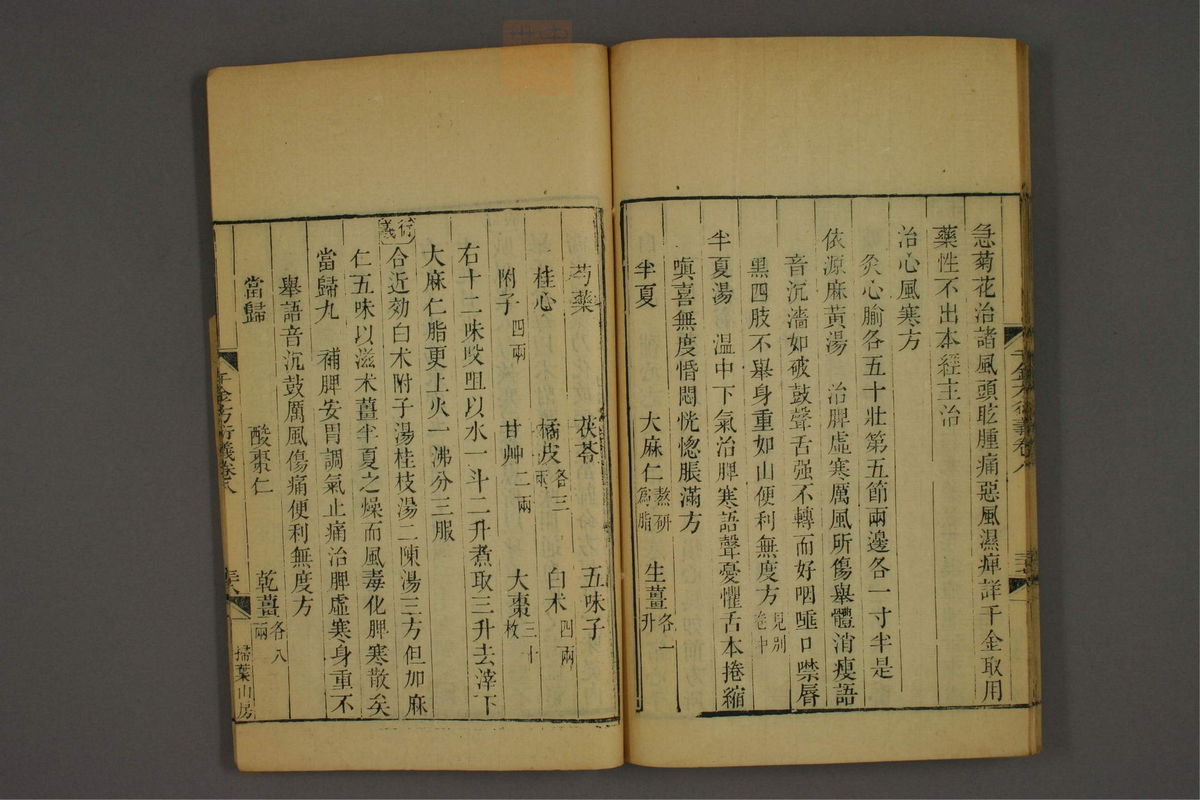 急菊花治諸風頭眩腫痛惡風濕痺詳千金取用
藥性不出本經主治
治心風寒方
灸心腧各五十壯第五節兩邊各一寸半是
依源麻黃湯 治脾虛寒厲風所傷舉體消瘦語
音沉濇如破鼓聲舌强不轉而好咽唾口噤唇
黑四肢不舉身重如山便利無度方見別卷中
半夏湯 温中下氣治脾寒語聲憂懼舌本捲縮
嗔喜無度惛悶恍惚脹滿方
半夏 大麻仁熬研爲脂 生薑各一升
芍藥 茯苓 五味子
桂心 橘皮各三兩 白朮四兩
附子四兩 甘艸二兩 大棗三十枚
右十二味㕮咀以水一斗二升煮取三升去滓下
大麻仁脂更上火一沸分三服
衍義 合近効白朮附子湯桂枝湯二陳湯三方但加麻
仁五味以滋朮薑半夏之燥而風毒化脾寒散矣
當歸丸 補脾安胃調氣止痛治脾虛寒身重不
舉語音沉鼓厲風傷痛便利無度方
當歸 酸棗仁 乾薑各八兩
千金方衍義卷八
掃葉山房